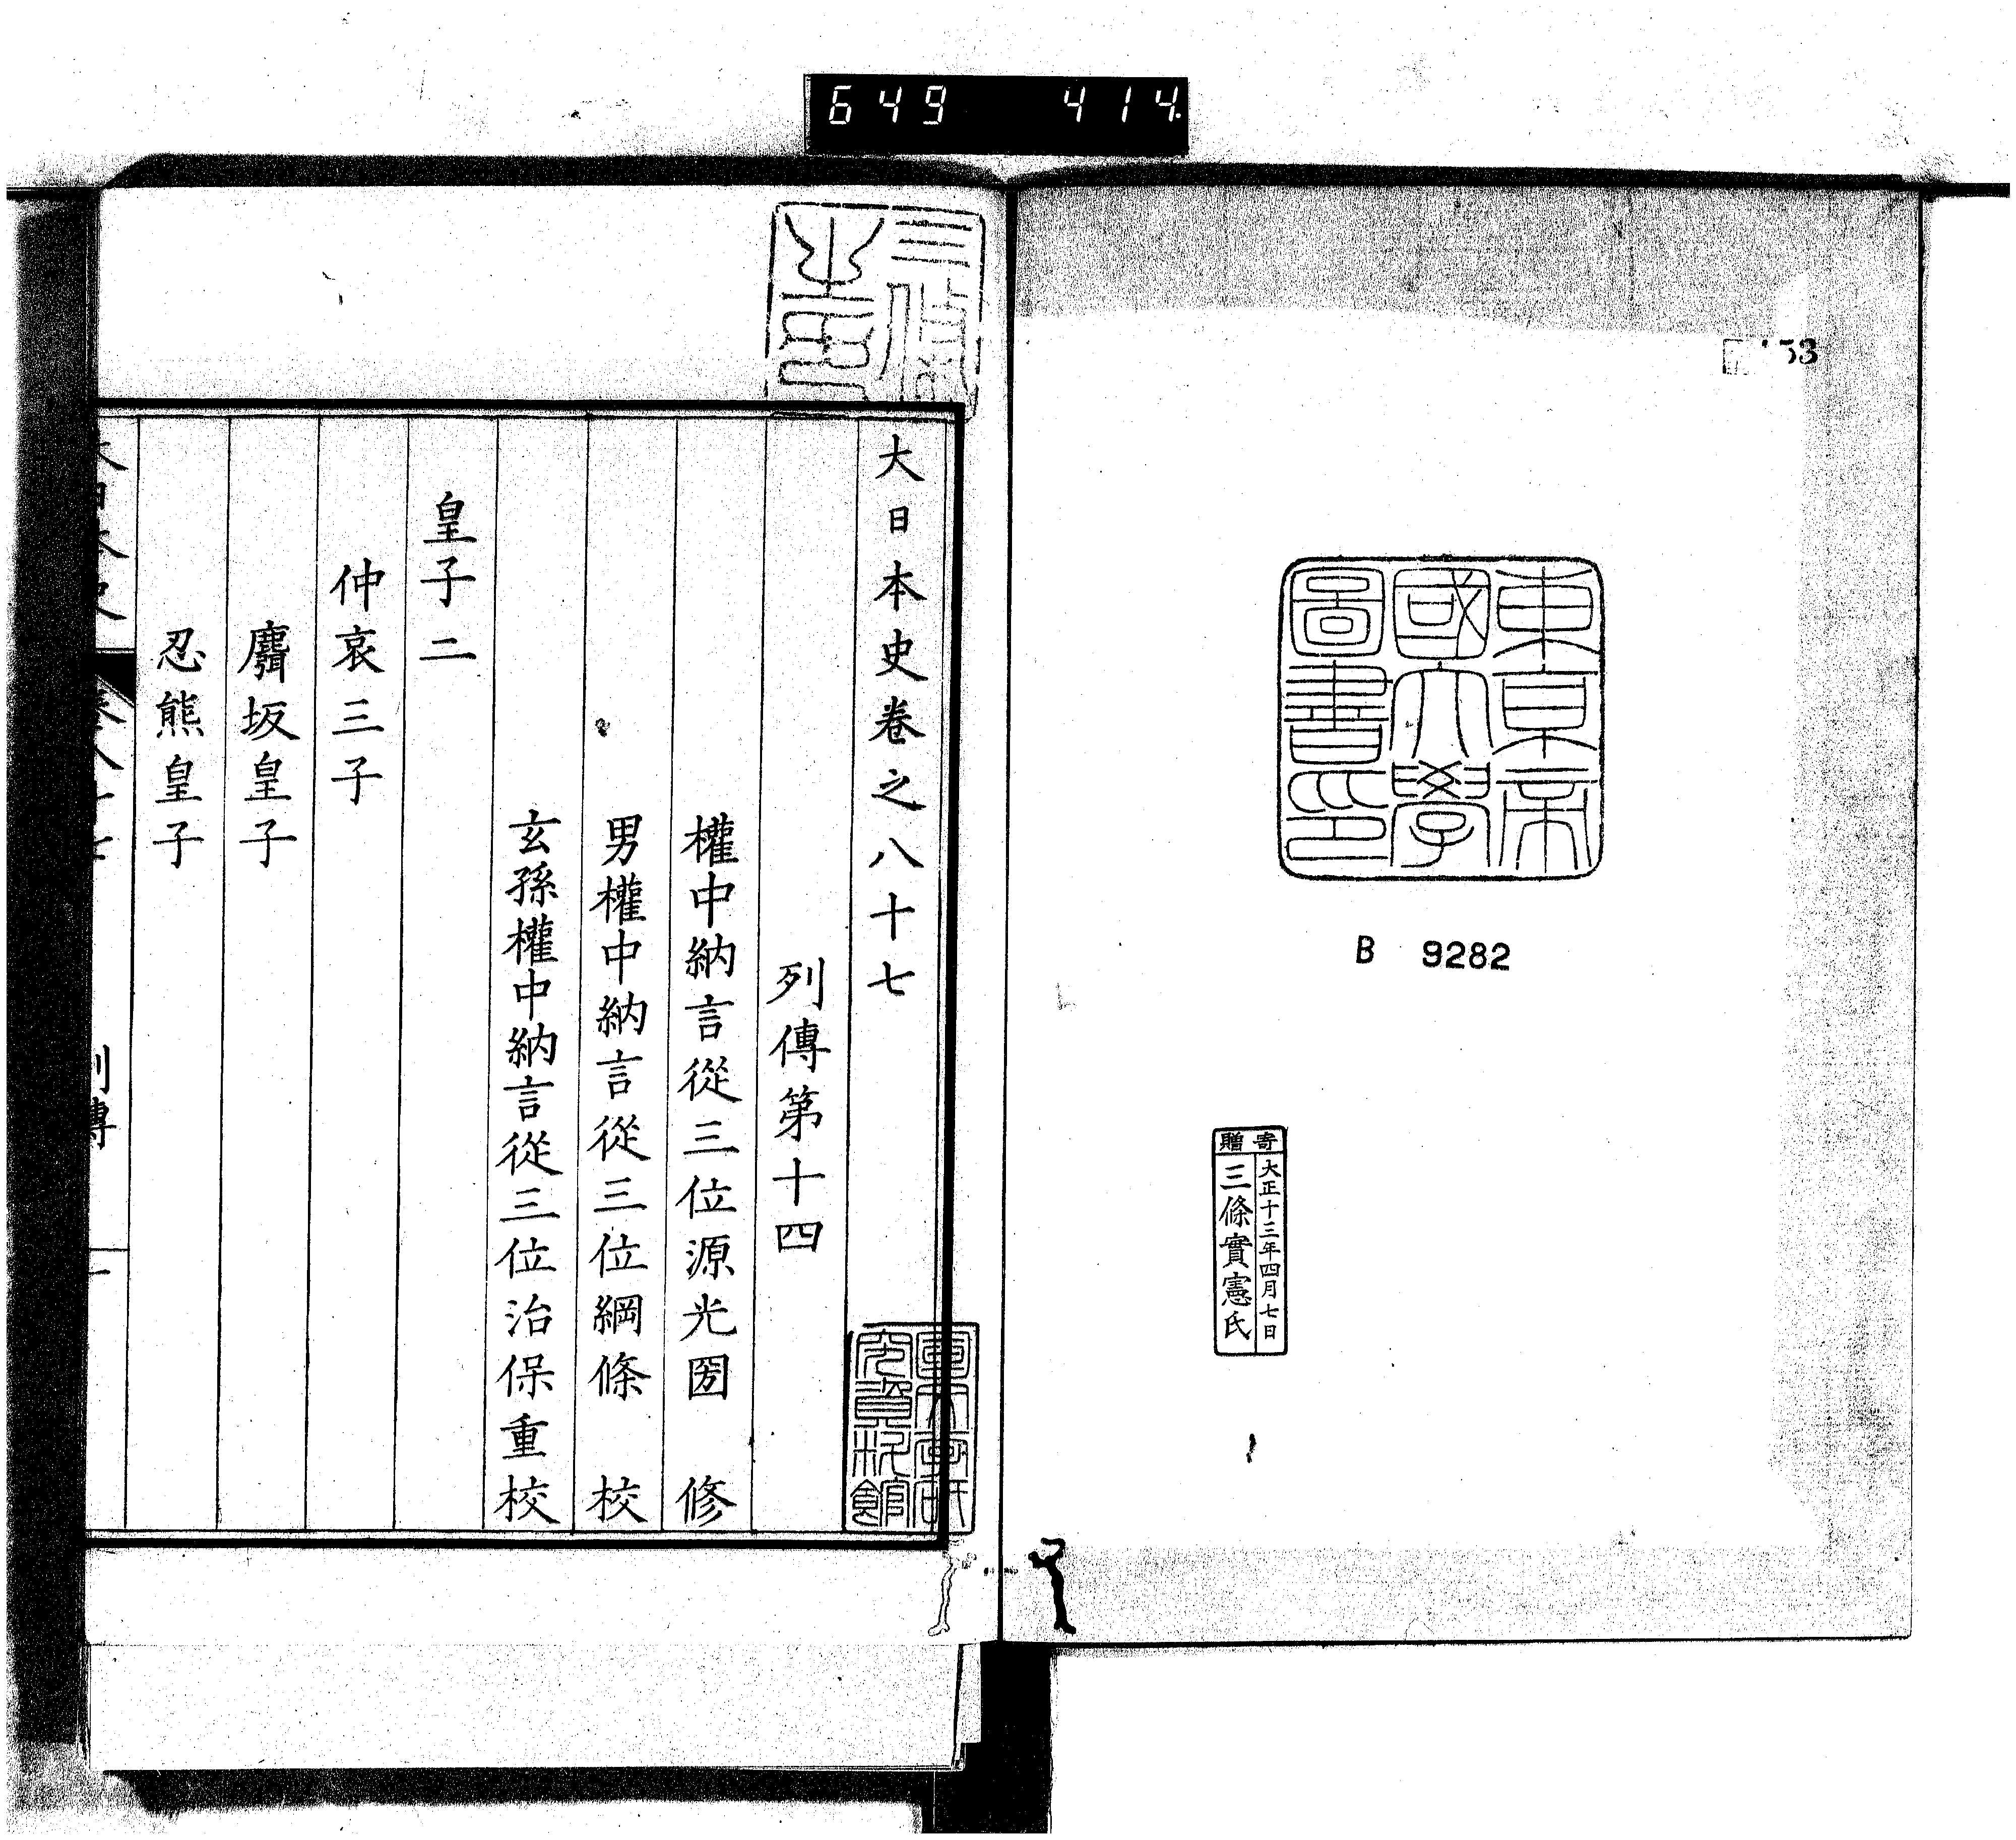 649 414.
53
東京帝
國大學
圖書印
B 9282
寄贈
大正十三年四月七日
三條實憲氏
大日本史卷之八十七
列傳第十四
權中納言從三位源光圀 修
男權中納言從三位綱條 校
玄孫權中納言從三位治保重校
皇子二
仲哀三子
麛坂皇子
忍熊皇子
大日本史 卷八十七 列傳 一